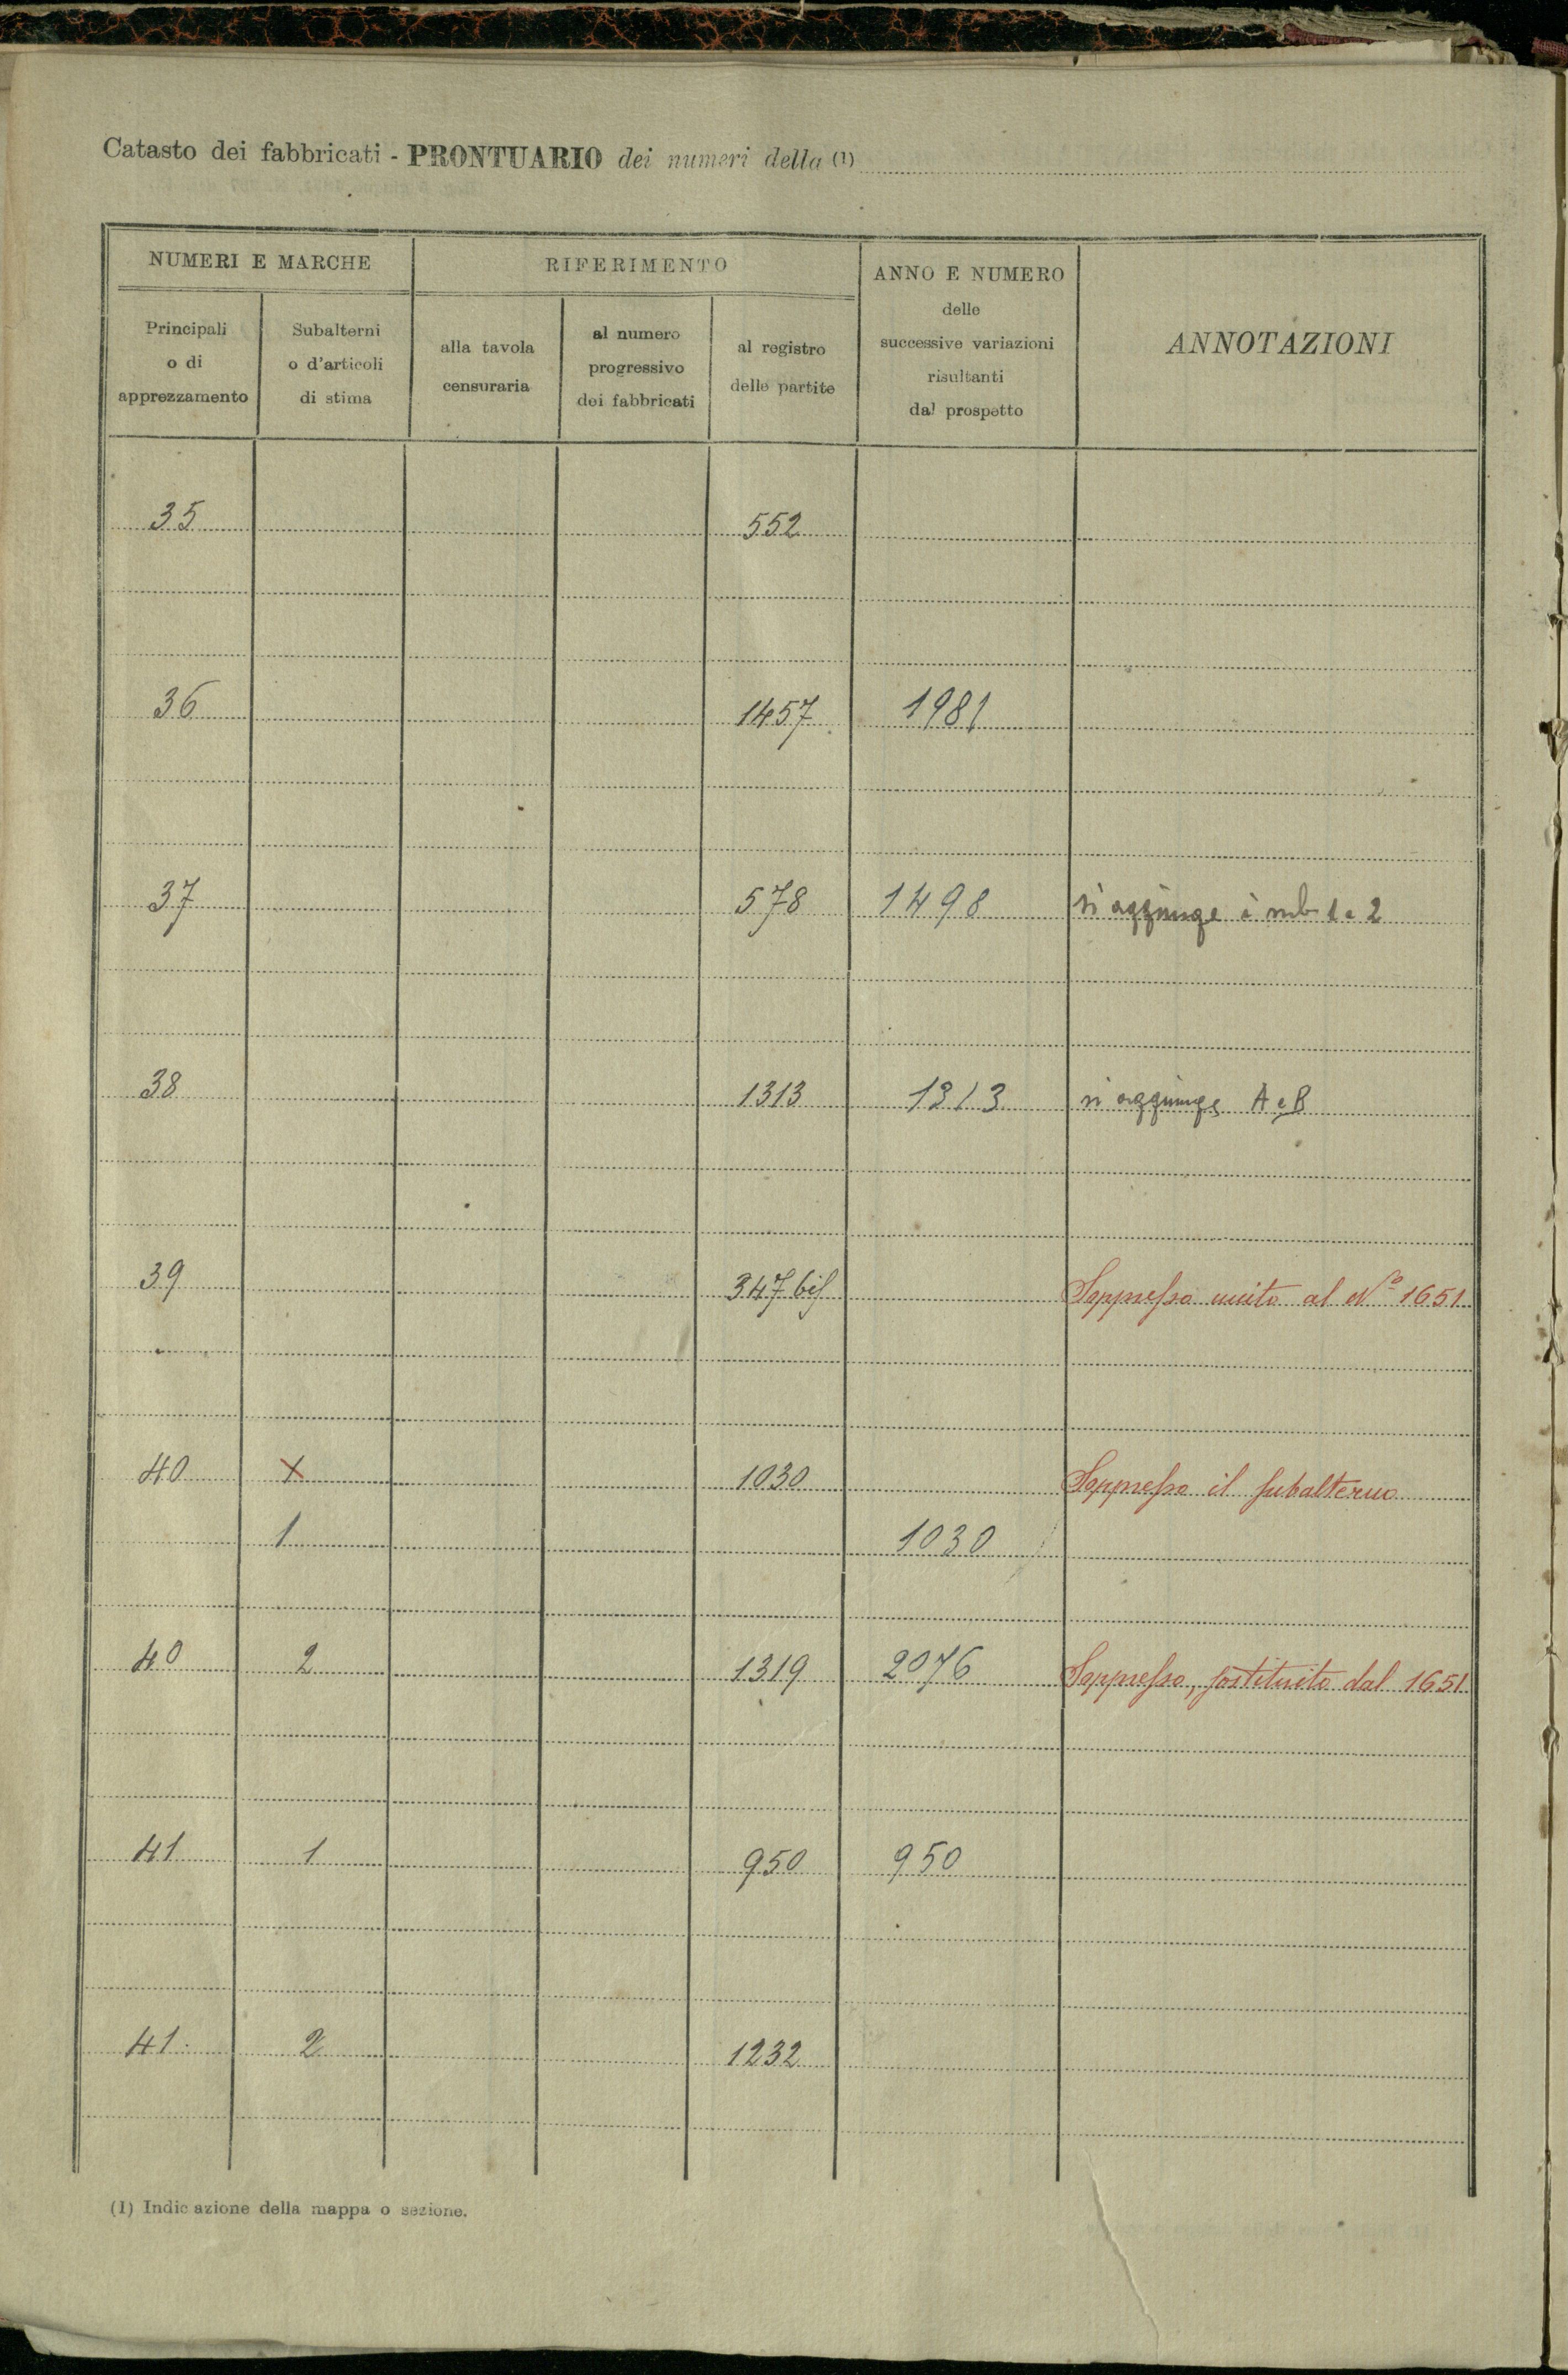 Catasto dei fabbricati - PRONTUARIO dei numeri della (1)
NUMERI E MARCHE
RIFERIMENTO
ANNO E NUMERO
delle
successive variazioni
risultanti
dal prospetto
ANNOTAZIONI
Principali
o di
apprezzamento
Subalterni
o d'articoli
di stima
alla tavola
censuraria
al numero
progressivo
dei fabbricati
al registro
delle partite
35 552
36 1457 1981
37 578 1498 si aggiunge i sub 1 e 2
38 1313 1313 si aggiunge A e B
39 347 bis Soppresso unito al N° 1651
40 1030 Soppresso il subalterno
1 1030
40 2 1319 2076 Soppresso, sostituito dal 1651
41 1 950 950
41. 2 1232
(1) Indicazione della mappa o sezione.